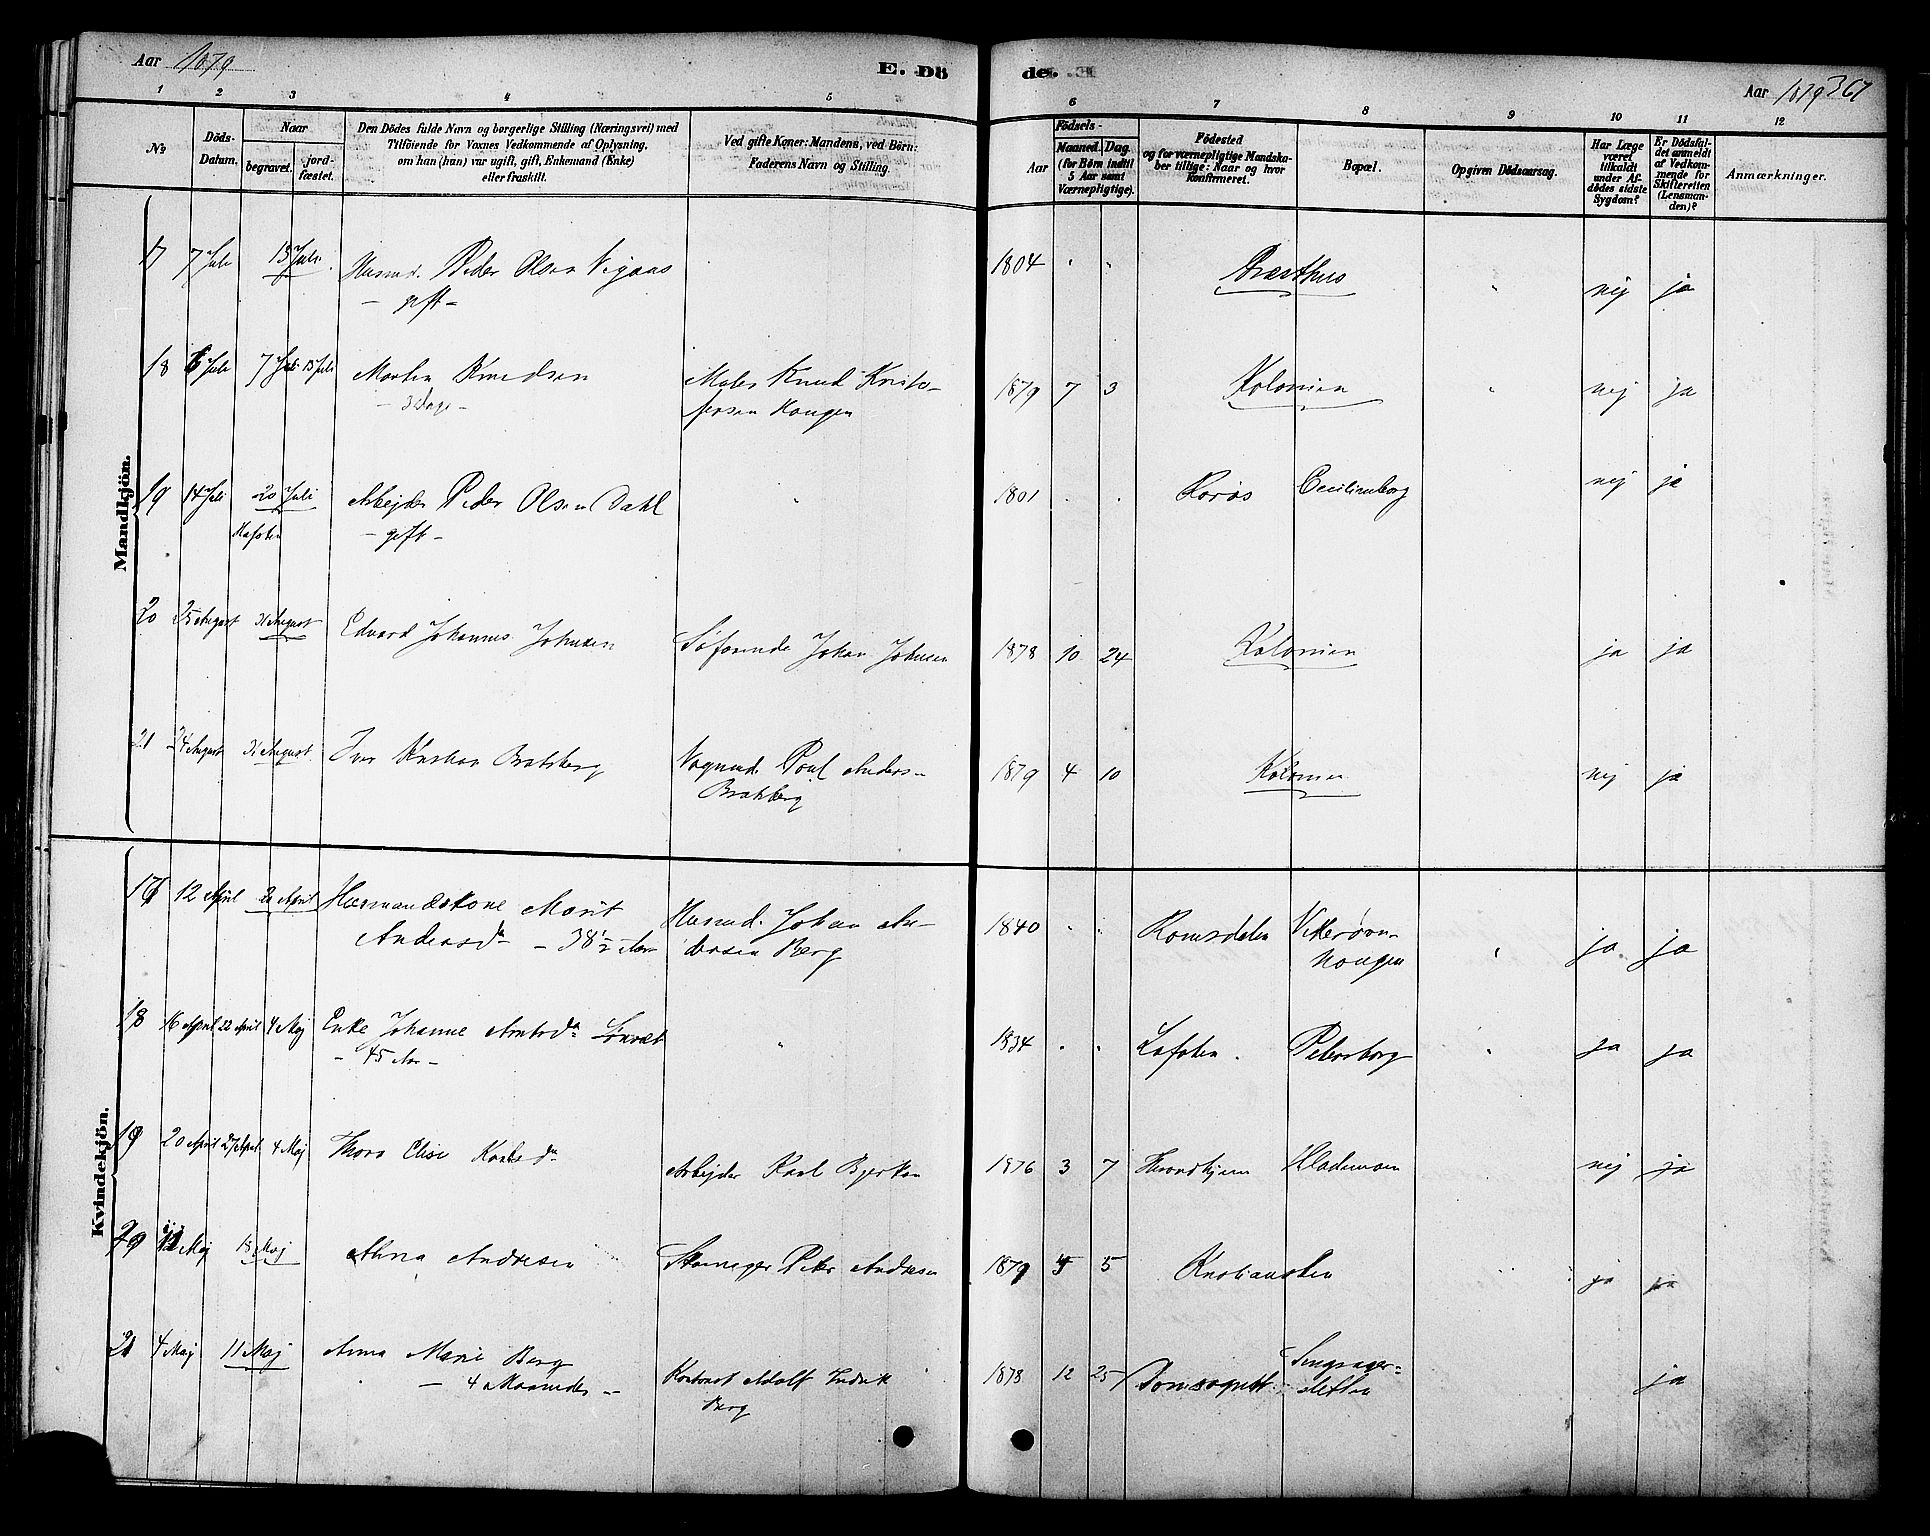 Aar 1879
E. Dö
de.
Aar 1879 367
1 2 3 4 5 6 7 8 9 10 11 12
No
Döds-Datum.
Naar
begravet.
jord-fæstet.
Den Dödes fulde Navn og borgerlige Stilling (Næringsvei) med
Tilföiende for Voxnes Vedkommende af Oplysning,
om han (hun) var ugift, gift, Enkemand (Enke)
eller fraskilt.
Ved gifte Koner: Mandens, ved Börn:
Faderens Navn og Stilling.
Födsels-
Aar
Maaned. Dag.
(for Börn indtil
5 Aar samt
Værnepligtige).
Födested
og for værnepligtige Mandska-
ber tillige: Naar og hvor
Konfirmeret.
Bopæl.
Opgiven Dödsaarsag.
Har Læge
været
tilkaldt
under Af-
dödes sidste
Sygdom?
Er Dödsfal-
det anmeldt
af Vedkom-
mende for
Skifteretten
(Lensman-
den)?
Anmærkninger.
Mandkjön.
17 7 Juli 13 Juli Husmd. Peder Olsen Vigaas 1804 " " Præsthus " nej ja
- gift -
18 6 Juli 7 Juli 13 Juli Morten Knudsen Maler Knud Kristo- 1879 7 3 Kolonien " nej ja
- 3 Dage - fersen Haugen
19 14 Juli 20 Juli Arbejder Peder Olsen Dahl " 1801 " " Røros Cecilienborg nej ja
- gift -
20 25 August 31 August Edvard Johannes Johnsen Søfarende Johan Johnsen 1878 10 24 Kolonien ja ja
21 24 August 31 August Iver Kristian Bratsberg Vognmd. Poul Anders- 1879 4 10 Kolonien nej ja
Bratsberg
Kvindekjön.
17 12 April 20 April Husmandskone Marit Husmd. Johan An- 1840 " " Romsdalen " ja ja
Andersdr - 38 1/2 Aar dersen Berg haugen
18 16 April 22 April 4 Maj Enke Johanne " 1834 " " Lofoten Petersborg " ja ja
- 45 Aar -
19 20 April 27 April 4 Maj Thora Elise Karlsdr Arbejder Karl Bjerkan 1876 3 7 Throndhjem Hlademoen nej ja
20 11 Maj 18 Maj Anna Andresen Peter Andresen 1879 5 5 Kristiansten ja ja
21 4 Maj 11 Maj Anna Marie Berg Kontorist Adolf Fredrik 1878 12 25 Domsognet Singsager- ja
- 4 Maaneder - Berg sletten